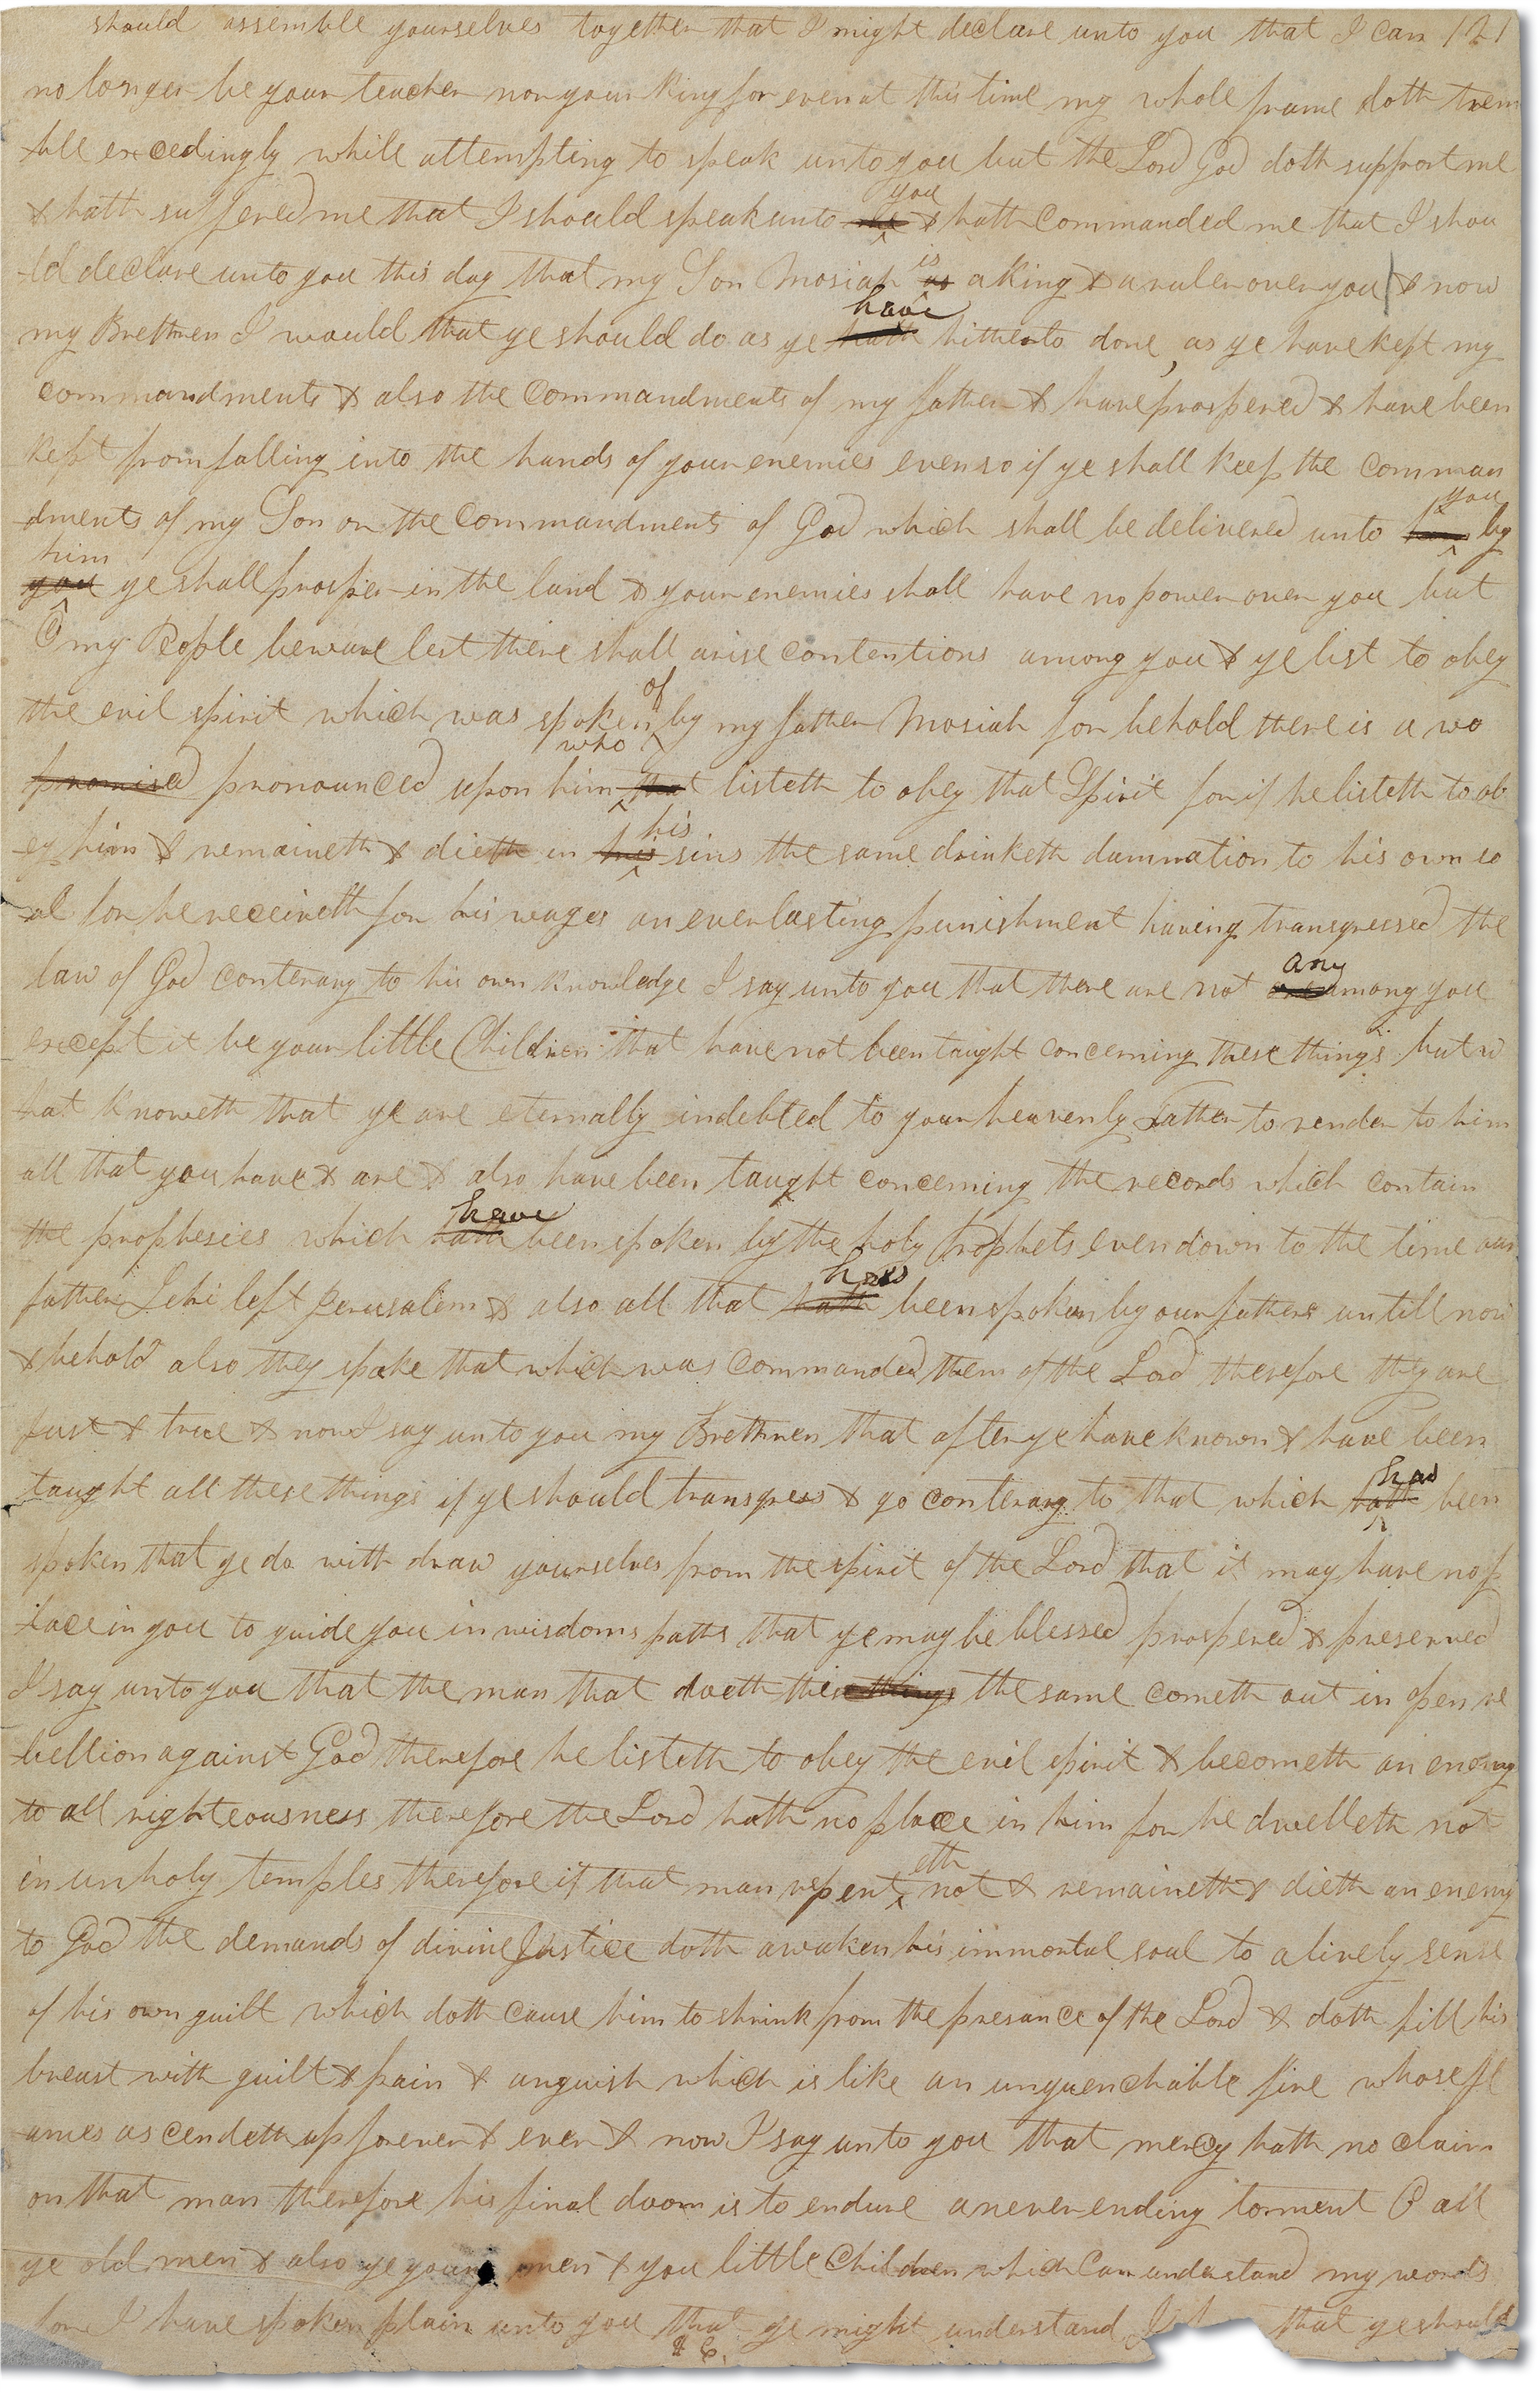 should assemble yourselves together that I might declare unto you that I can 121
no longer be your teacher nor your King for even at this time my whole frame doth trem
ble excedingly while attempting to speak unto you but the Lord God doth support me
& hath suffered me that I should speak unto you & hath commanded me that I shou
ld declare unto you this day that my Son Mosiah is a King & a ruler over you & now
my Brethren I would that ye should do as ye have hitherto done, as ye have kept my
commandments & also the commandments of my father & have prospered & have been
kept from falling into the hands of your enemies even so if ye shall keep the comman
dments of my Son or the commandments of God which shall be delivered unto you by
him ye shall prosper in the land & your enemies shall have no power over you but
O my People beware lest there shall arise contentions among you & ye list to obey
the evil spirit which was spoken of by my father Mosiah for behold there is a wo
promised pronounced upon him who that listeth to obey that Spirit for if he listeth to ob
ey him & remaineth & dieth in his his sins the same drinketh damnation to his own so
ul for he receiveth for his wages an everlasting punishment having transgressed the
law of God conterary to his own knowledge I say unto you that there are not any among you
except it be your little Children that have not been taught concerning these things but w
hat knoweth that ye are eternally indebted to your heavenly Father to render to him
all that you have & are & also have been taught concerning the records which contain
the prophesies which have hath been spoken by the holy Prophets even down to the time our
father Lehi left Jerusalem & also all that has hath been spoken by our fathers untill now
& behold also they spake that which was commanded them of the Lord therefore they are
just & true & now I say unto you my Brethren that after ye have known & have been
taught all these things if ye should transgress & go conterary to that which had hath been
spoken that ye do with draw yourselves from the spirit of the Lord that it may have no p
lace in you to guide you in wisdoms paths that ye may be blessed prospered & preserved
I say unto you that the man that doeth these things the same cometh out in open re
bellion against God therefore he listeth to obey the evil spirit & becometh an enemy
to all righteousness therefore the Lord hath no place in him for he dwelleth not
in unholy temples therefore if that man repenteth not & remaineth & dieth an enemy
to God the demands of divine Justice doth awaken his immortal soul to a lively sense
of his own guilt which doth cause him to shrink from the presance of the Lord & doth fill his
breast with guilt & pain & anguish which is like an unquenchable fire whose fl
ames ascendeth up forever & ever & now I say unto you that mercy hath no claim
on that man therefore his final doom is to endure a never ending torment O all
ye old men & also ye young men & you little Children which can understand my words
for I have spoken plain unto you that ye might understand I that ye should
&C.